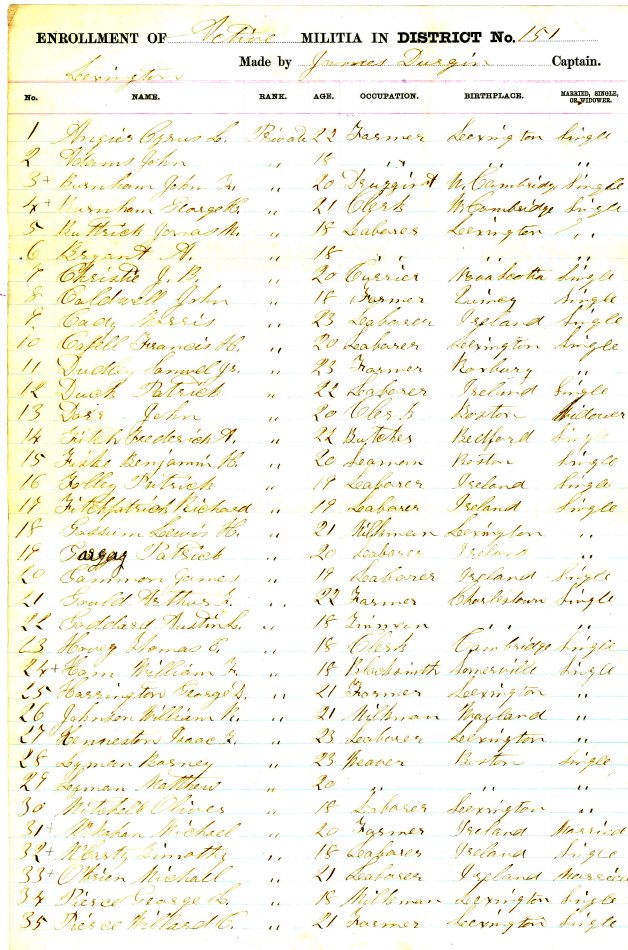 ENROLLMENT OF Active MILITIA IN DISTRICT No. 151
Lexington Made by James Durgin Captain.
No. NAME. RANK. AGE. OCCUPATION. BIRTHPLACE. MARRIED, SINGLE, OR WIDOWER.
1 Angier Cyrus L. Private 22 Farmer Lexington Single
2 Adams John " 18 " " "
3 + Burnham John " 20 Druggist W. Cambridge Single
4 + Burnham George " 21 Clerk W. Cambridge Single
5 Buttrick Jonas " 18 Laborer Lexington "
6 Bryant A. " 18 " " "
7 Christie J. B. " 20 Currier Nova Scotia Single
8 Caldwell John " 18 Farmer Quincy Single
9 Cady " 23 Laborer Ireland Single
10 Francis H. " 20 Laborer Lexington Single
11 Dudley Samuel Jr. " 23 Farmer Roxbury "
12 Duck Patrick " 22 Laborer Ireland Single
13 John " 20 Clerk Boston Widower
14 Fitch Frederick A. " 22 Butcher Bedford Single
15 Fiske Benjamin H. " 20 Seaman Boston Single
16 Folley Patrick " 19 Laborer Ireland Single
17 Fitchpatrick Richard " 19 Laborer Ireland Single
18 Lewis H. " 21 Milkman Lexington "
19 Patrick " 20 Laborer Ireland "
20 Gammon James " 19 Laborer Ireland Single
21 Gould Arthur F. " 22 Farmer Charlestown Single
22 Goddard Austin L. " 18 Tinman " "
23 Hovey Thomas E. " 18 Clerk Cambridge Single
24 + Ham William F. " 18 Blacksmith Somerville Single
25 Harrington George D. " 21 Farmer Lexington "
26 Johnson William " 21 Milkman Wayland "
27 Kenneston Isaac F. " 23 Laborer Lexington "
28 Lyman Barney " 23 Weaver Boston Single
29 Lyman Matthew " 20 " " "
30 Mitchell Oliver " 18 Laborer Lexington "
31 + Michael " 20 Farmer Ireland Married
32 + Timothy " 18 Laborer Ireland Single
33 + OBrien Michall " 21 Laborer Ireland Married
34 Pierce George L. " 18 Milkman Lexington Single
35 Pierce Willard C. " 21 Farmer Lexington Single